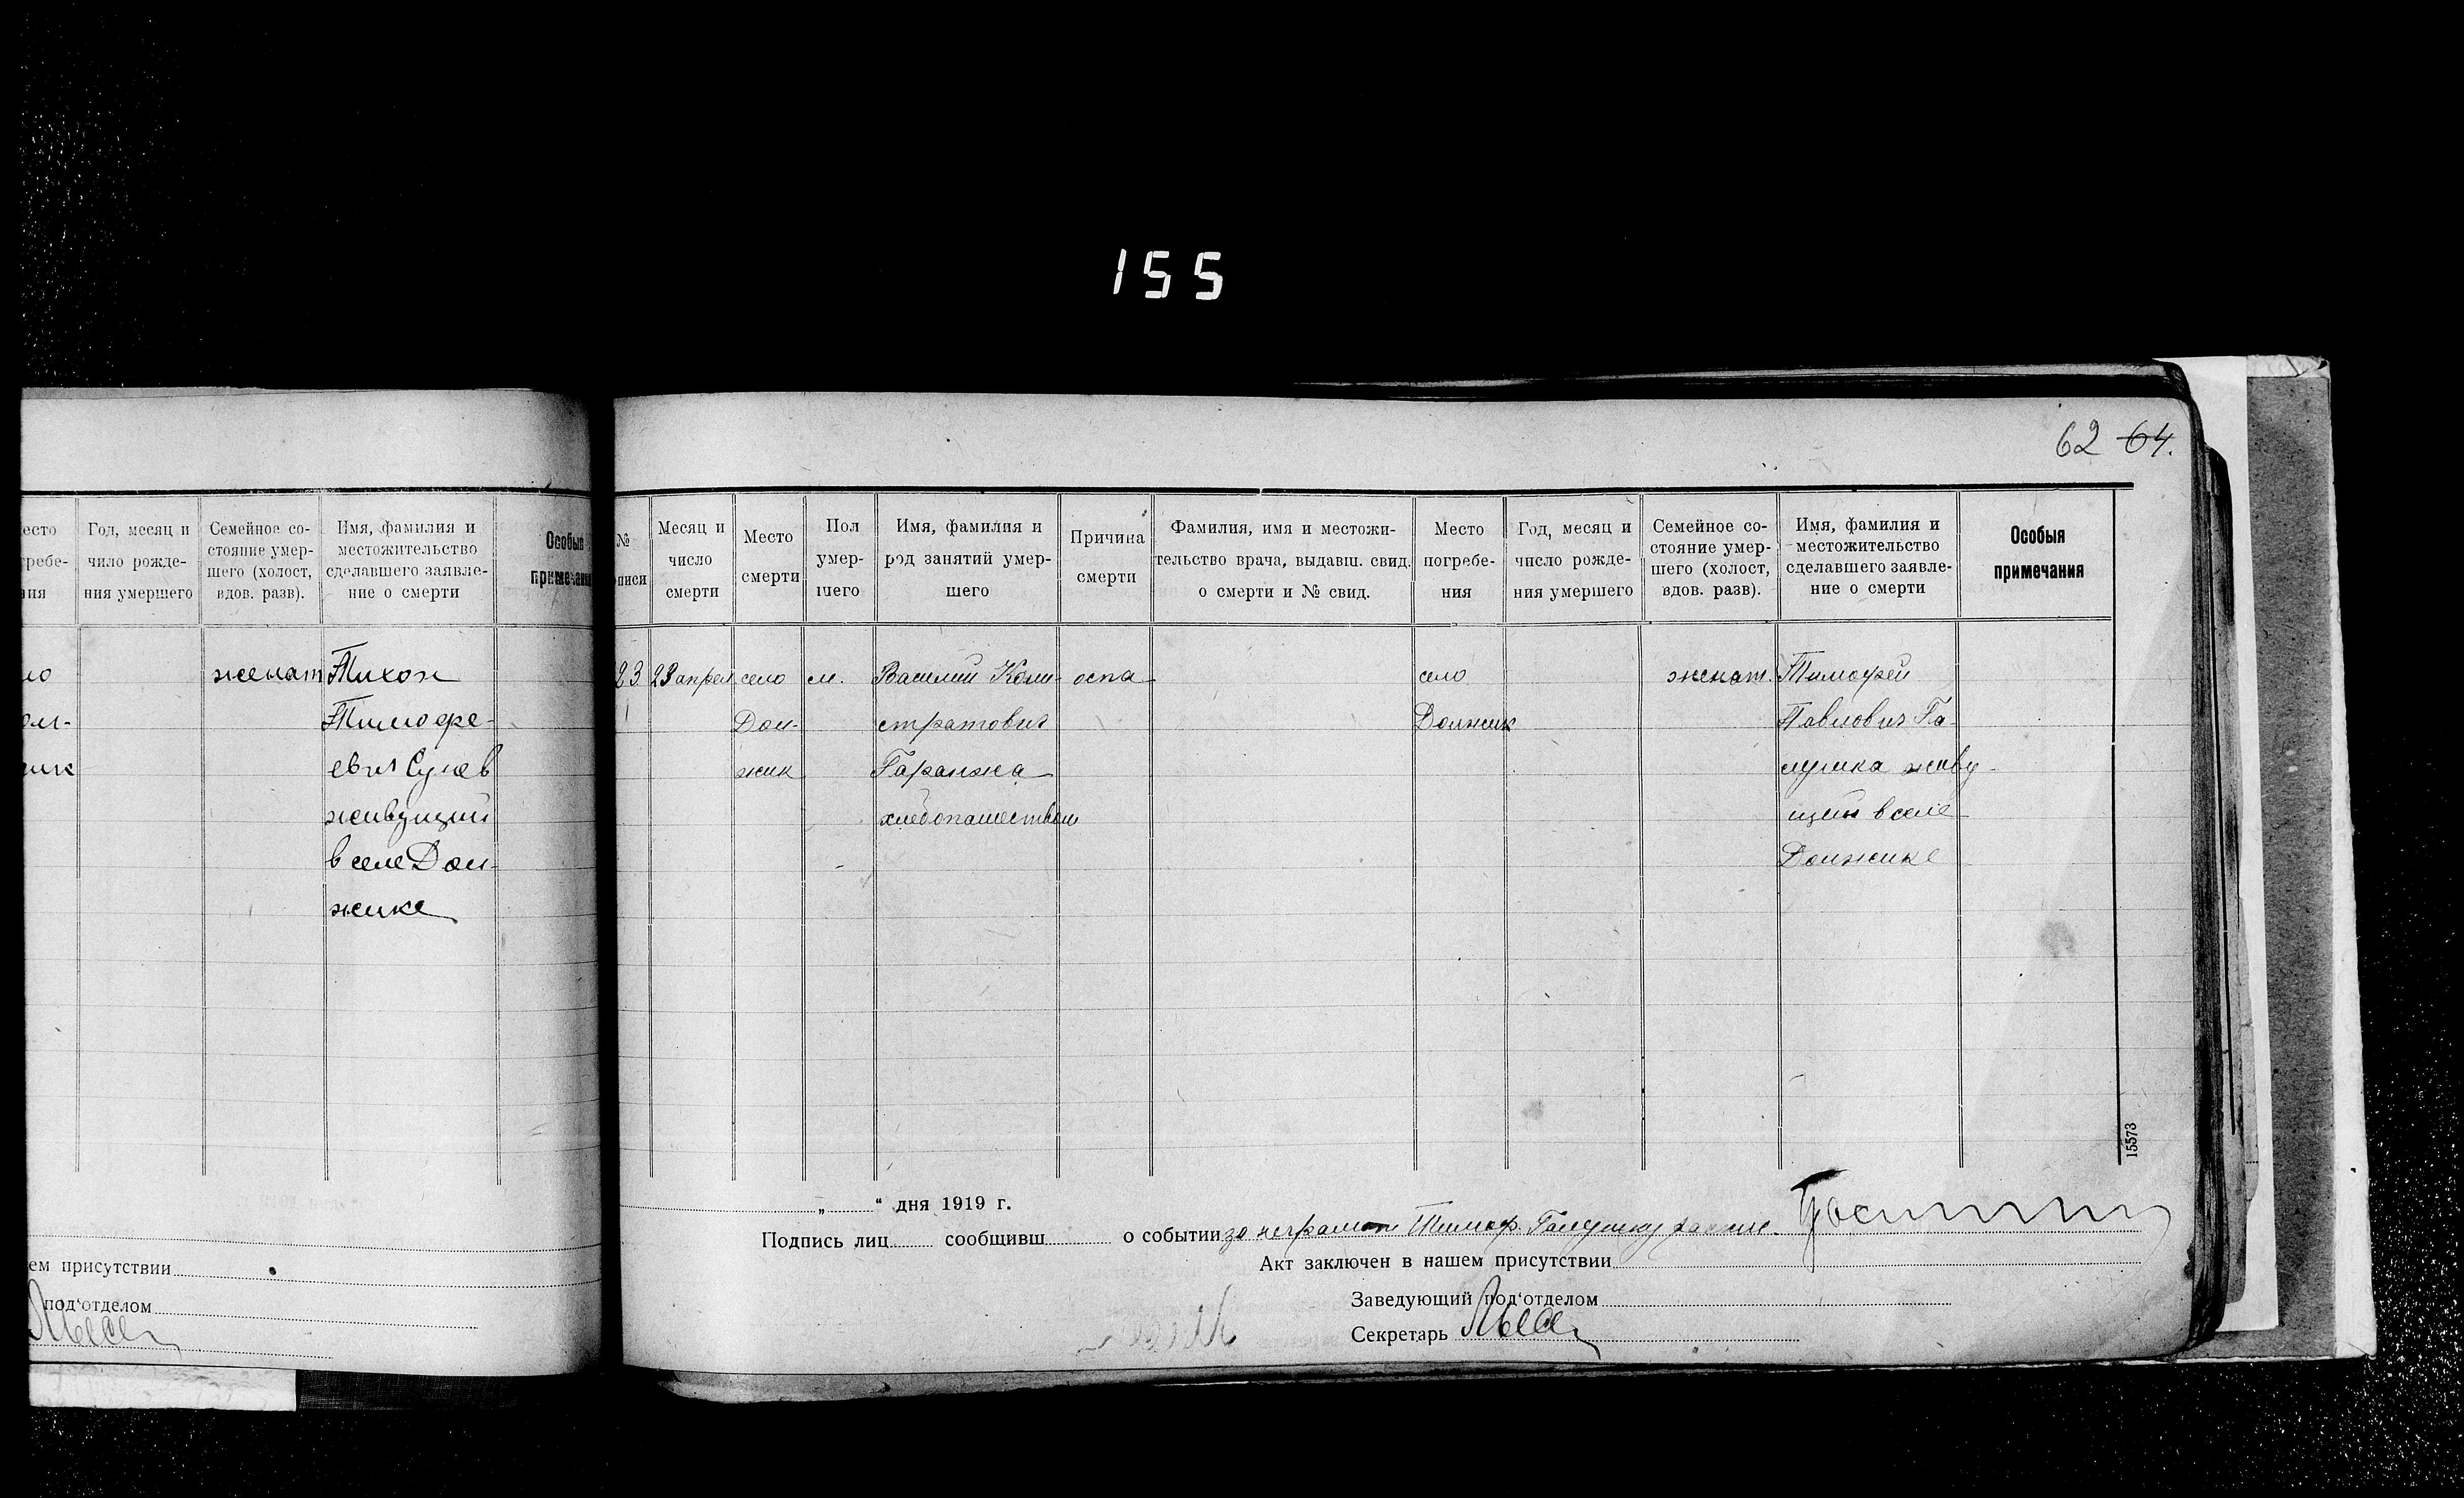 155
62 64.
есто
гребе-
ния
Год, месяц и
чило рожде-
ния умершего
Семейное со-
стояние умер-
шего (холост,
вдов. разв).
Имя, фамилия и
местожительство
сделавшего заявле-
ние о смерти
Особыя
примечания
женат Тихон
Тимофе-
евич
живущий
в селе Дол-
жике
ем присутствии
под‘отделом
№
описи
Месяц и
число
смерти
Место
смерти
Пол
умер-
шего
Имя, фамилия и
род занятий умер-
шего
Причина
смерти
Фамилия, имя и местожи-
тельство врача, выдавш. свид.
о смерти и № свид.
Место
погребе-
ния
Год, месяц и
число рожде-
ния умершего
Семейное со-
стояние умер-
шего (холост,
вдов. разв).
Имя, фамилия и
местожительство
сделавшего заявле-
ние о смерти
Особыя
примечания
23 23 апрел село м. Василий Кали- оспа село женат. Тимофей
Дол- стратович Должик Павлович Га-
жик Гаранжа лушка живу-
хлебопашеством щий в селе
Должике
15573
„ “ дня 1919 г.
Подпись лиц сообщивш о событии за неграмотн Тимоф. Галушку распис.
Акт заключен в нашем присутствии
Заведующий под‘отделом
Секретарь